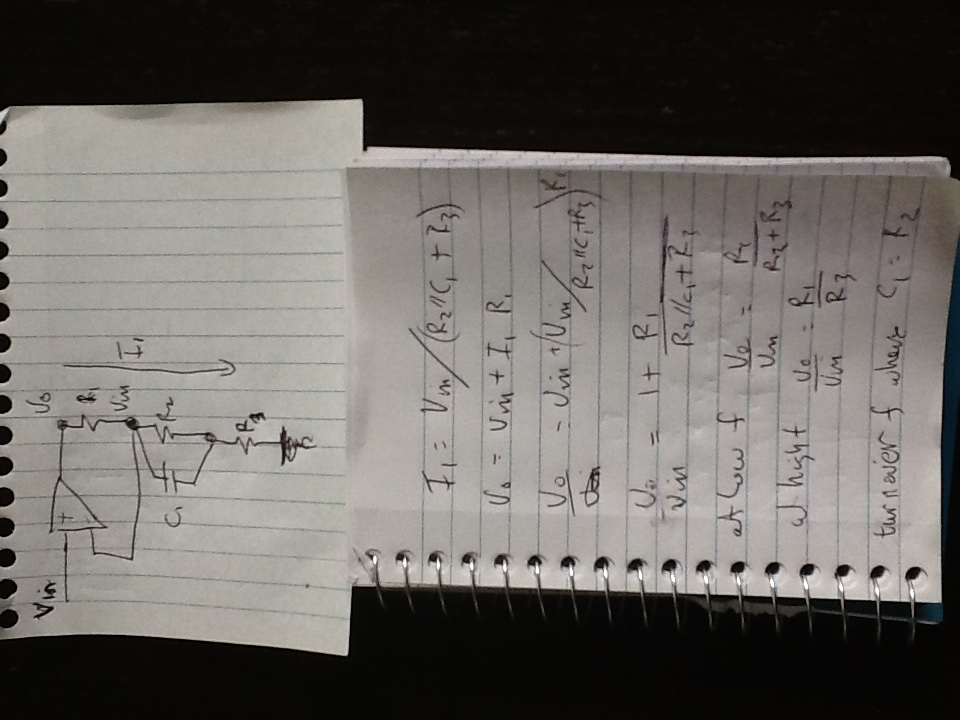 Vin
+
V0
R1
I1
Vin
R2
C1
R3
I1 = Vin / (R2 // C1 + R3)
V0 = Vin + I1 R1
V0 = Vin + (Vin / R2 // C1 + R3) R1
V0 / Vin = 1 + R1 / R2 // C1 + R3
at low f V0 / Vin = R1 / R2 + R3
at high f V0 / Vin = R1 / R3
turnover f where C1 = R2